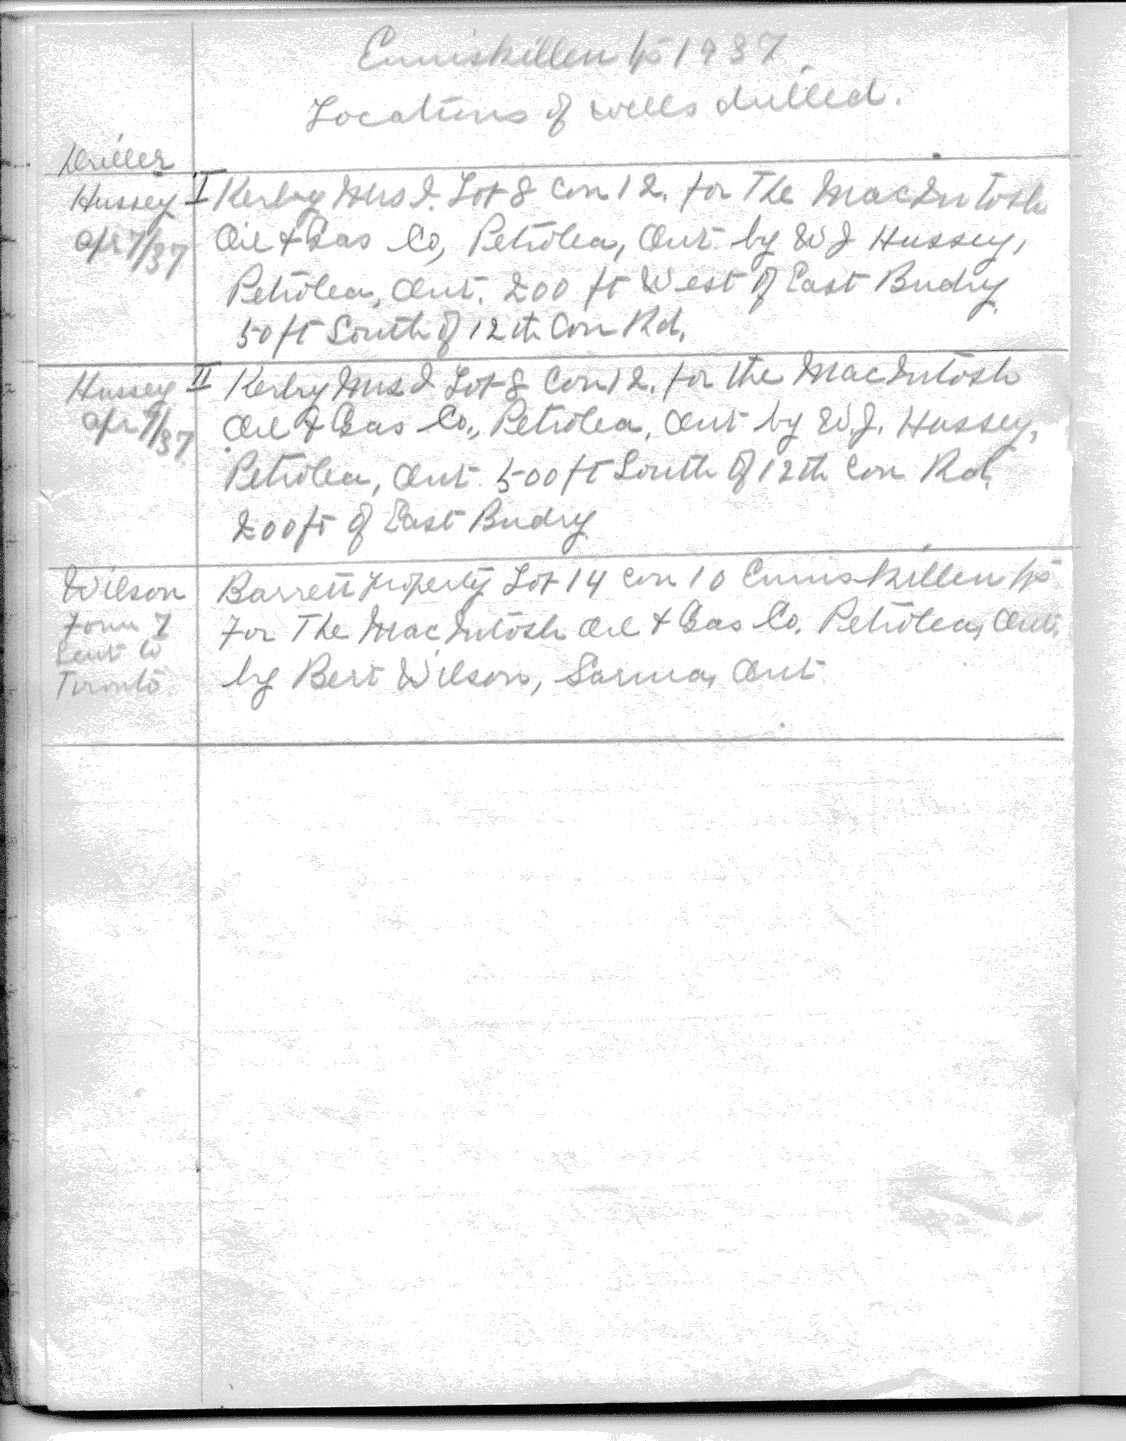 Enniskillen Tp 1937.
Locations of wells drilled.
Driller
Hussey I Kerby Mrs J. Lot 8 Con 12. for The MacIntosh
Apr 7/37 Oil & Gas Co, Petrolea, Ont. by W J Hussey,
Petrolea, Ont. 200 ft West of East Bndry
50 ft South of 12th Con Rd.
Hussey II Kerby Mrs J Lot 8 Con 12. for the MacIntosh
Apr 9/37 Oil & Gas Co., Petrolea, Ont by W.J. Hussey,
Petrolea, Ont. 500 ft South of 12th Con Rd.
200 ft of East Bndry
Wilson Barrett property Lot 14 Con 10 Enniskillen Tp
Form 7 For The MacIntosh Oil & Gas Co. Petrolea, Ont.
Sent to
Toronto. by Bert Wilson, Sarnia, Ont